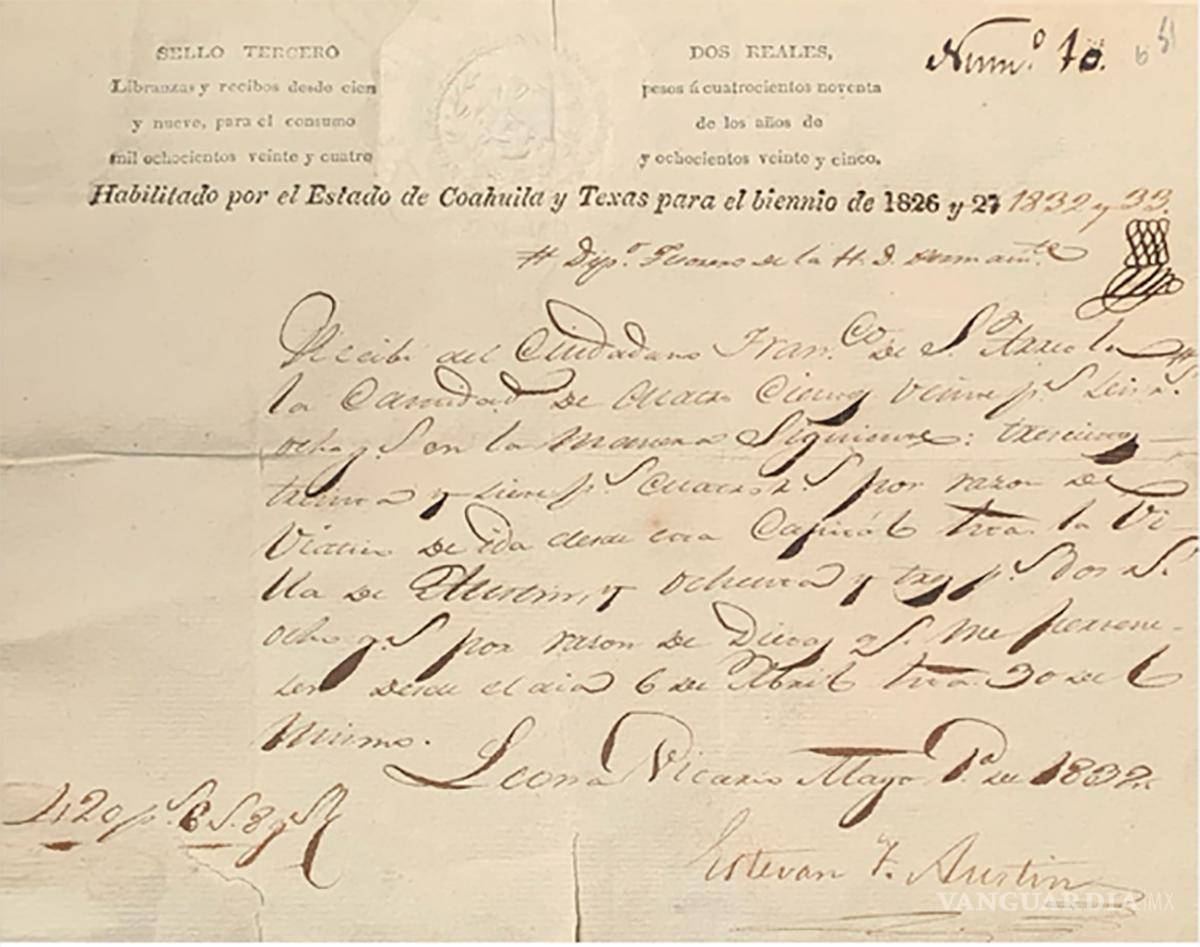 SELLO TERCERO
Libranzas y recibos desde cien
y nueve, para el consumo
mil ochocientos veinte y cuatro
DOS REALES,
pesos á cuatrocientos noventa
de los años de
y ochocientos veinte y cinco.
Num.º 10.
Habilitado por el Estado de Coahuila y Texas para el biennio de 1826 y 27 1832 y 33.
Dip.º Tesorero de la H. D. Perman.te
Recibi del Ciudadano Fran.co de S.
la Cantidad de cuatro Cientos Veinte p.s seis r.s
ocho g.s en la Manera Siguiente: trescientos
treinta y siete p.s cuatro r.s por razon de
Viatico de ida desde esta Capital hta. la Vi-
lla de Austin, y ochenta y tres p.s Dos r.s
ocho g.s por razon de Dietas q.e me pertene-
sen desde el dia 6 de Abril hta. 30 del
Mismo.
Leona Vicario Mayo 1º de 1832.
420 p.s 6 r.s 8 g.s
Estevan F. Austin
VANGUARDIA MX